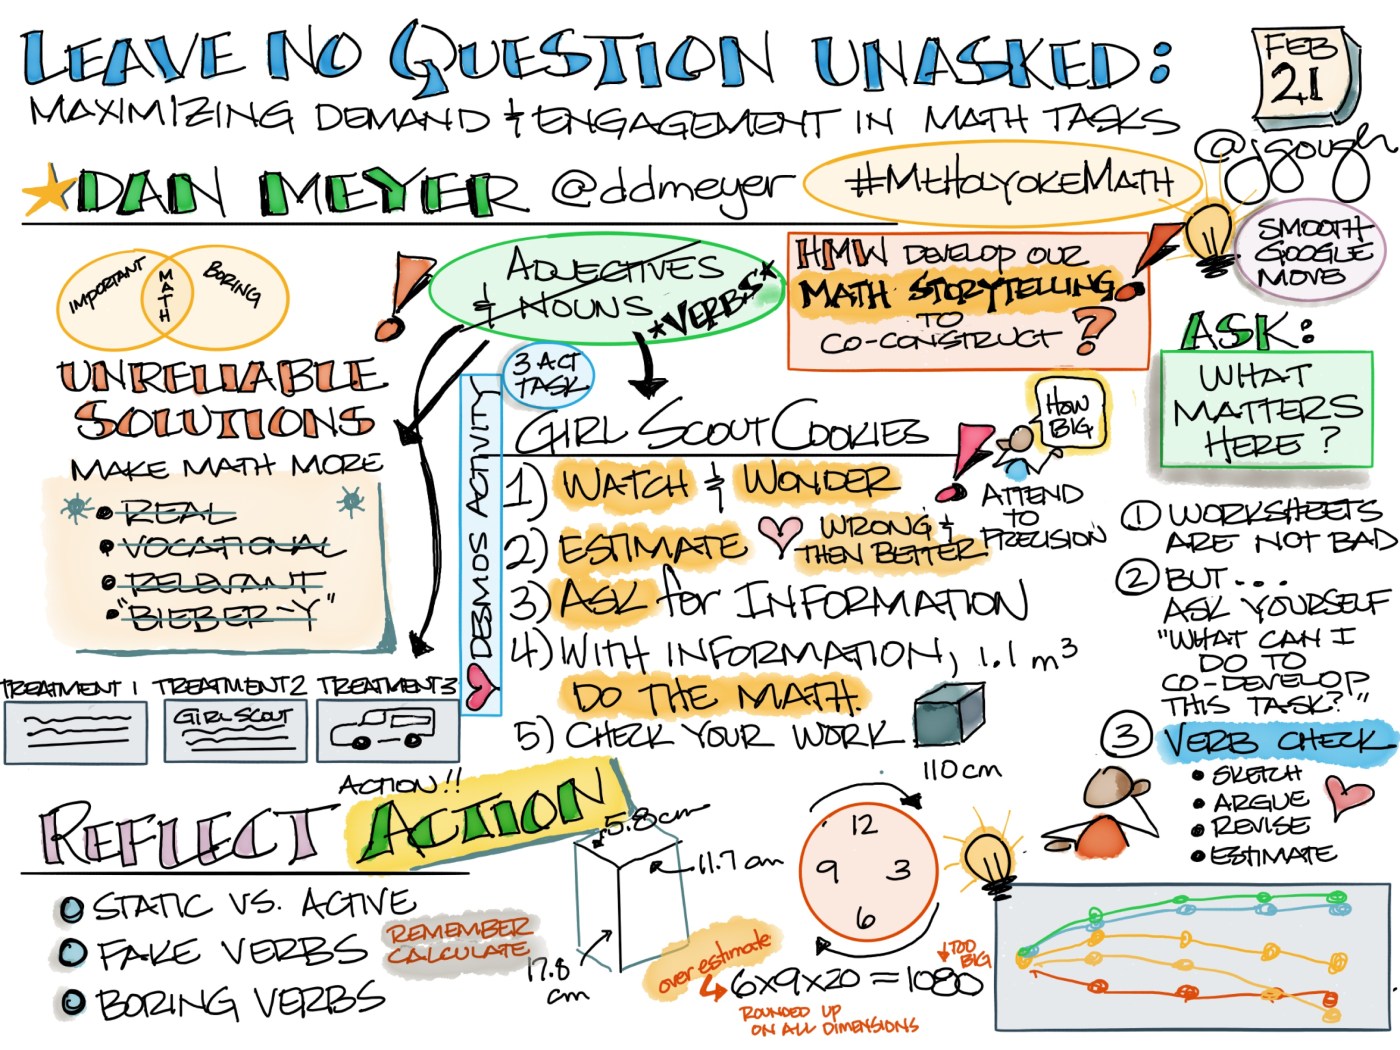 LEAVE NO QUESTION UNASKED:
MAXIMIZING DEMAND & ENGAGEMENT IN MATH TASKS
FEB
21
@jgough
DAN MEYER @ddmeyer #MtHolyokeMath
IMPORTANT
MATH
BORING
UNRELIABLE
SOLUTIONS
MAKE MATH MORE
• REAL
• VOCATIONAL
• RELEVANT
• "BIEBER-Y"
TREATMENT 1
TREATMENT 2
GIRL SCOUT
TREATMENT 3
ADJECTIVES
& NOUNS
*VERBS*
3 ACT
TASK
DESMOS ACTIVITY
HMW DEVELOP OUR
MATH STORYTELLING
TO
CO-CONSTRUCT ?
SMOOTH
GOOGLE
MOVE
GIRL SCOUT COOKIES
1) WATCH & WONDER
2) ESTIMATE
WRONG &
THEN BETTER
3) ASK for INFORMATION
4) WITH INFORMATION, 1.1 m³
DO THE MATH.
5) CHECK YOUR WORK
110 cm
HOW
BIG
ATTEND
TO
PRECISION
ASK:
WHAT
MATTERS
HERE?
① WORKSHEETS
ARE NOT BAD
② BUT...
ASK YOURSELF
"WHAT CAN I
DO TO
CO-DEVELOP
THIS TASK?"
③ VERB CHECK
• SKETCH
• ARGUE
• REVISE
• ESTIMATE
ACTION!!
REFLECT ACTION
STATIC VS. ACTIVE
FAKE VERBS
REMEMBER
CALCULATE
BORING VERBS
5.8cm
11.7 cm
17.8
cm
12
9 3
6
over estimate
6x9x20 = 1080
TOO
BIG
ROUNDED UP
ON ALL DIMENSIONS